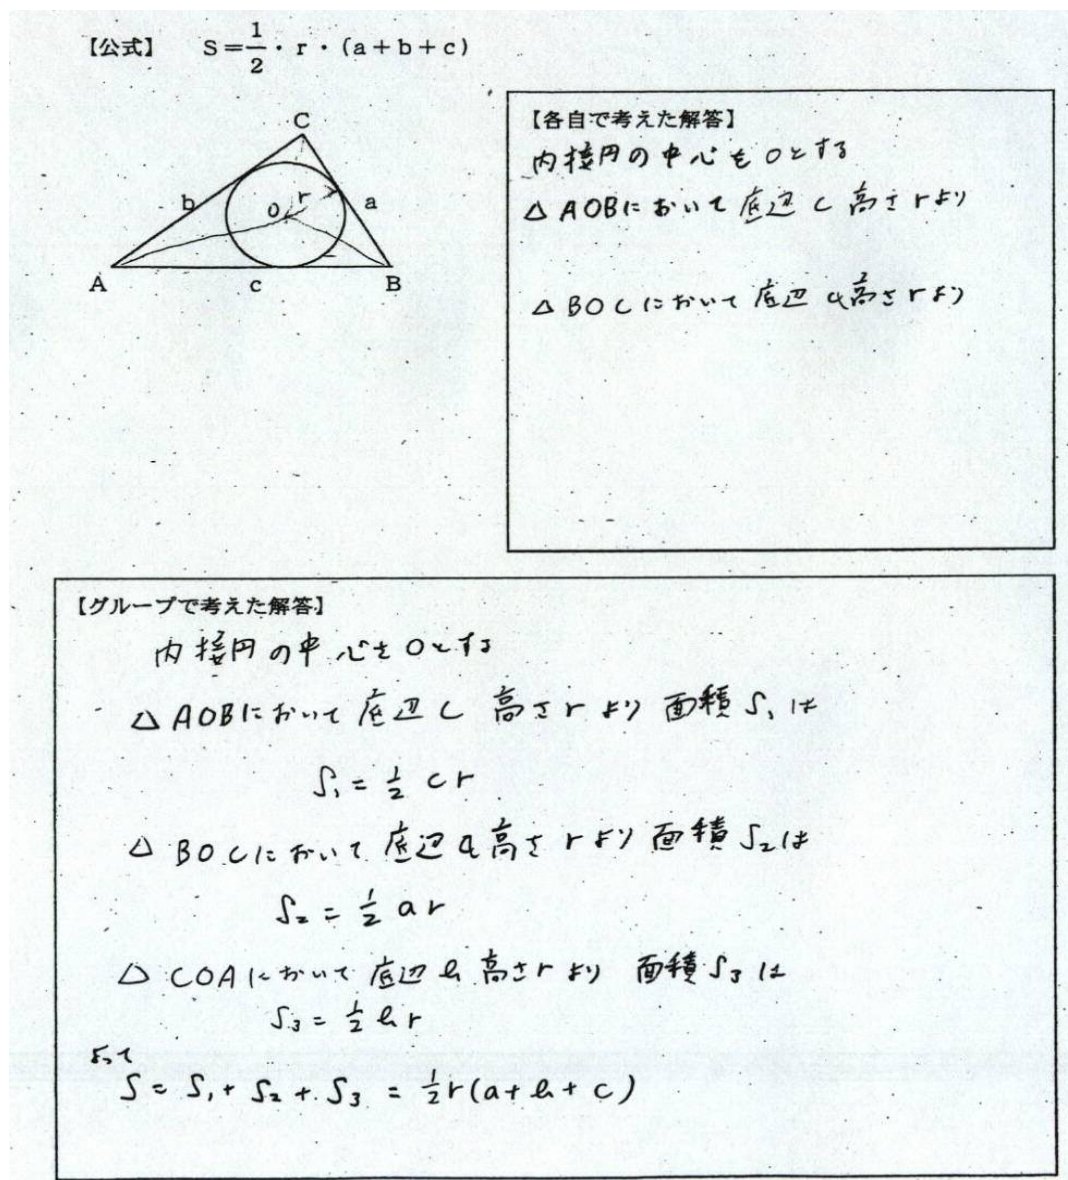 【公式】 S=1/2・r・(a+b+c)
C
b
O
r
a
A
c
B
【各自で考えた解答】
内接円の中心をOとする
△AOBにおいて底辺c 高さrより
△BOCにおいて底辺a高さrより
【グループで考えた解答】
内接円の中心をOとする
△AOBにおいて底辺c 高さrより 面積S₁は
S₁=1/2 cr
△BOCにおいて底辺a高さrより面積S₂は
S₂=1/2 ar
△COAにおいて底辺b高さrより 面積S₃は
S₃=1/2 br
よって
S=S₁+S₂+S₃=1/2r(a+b+c)